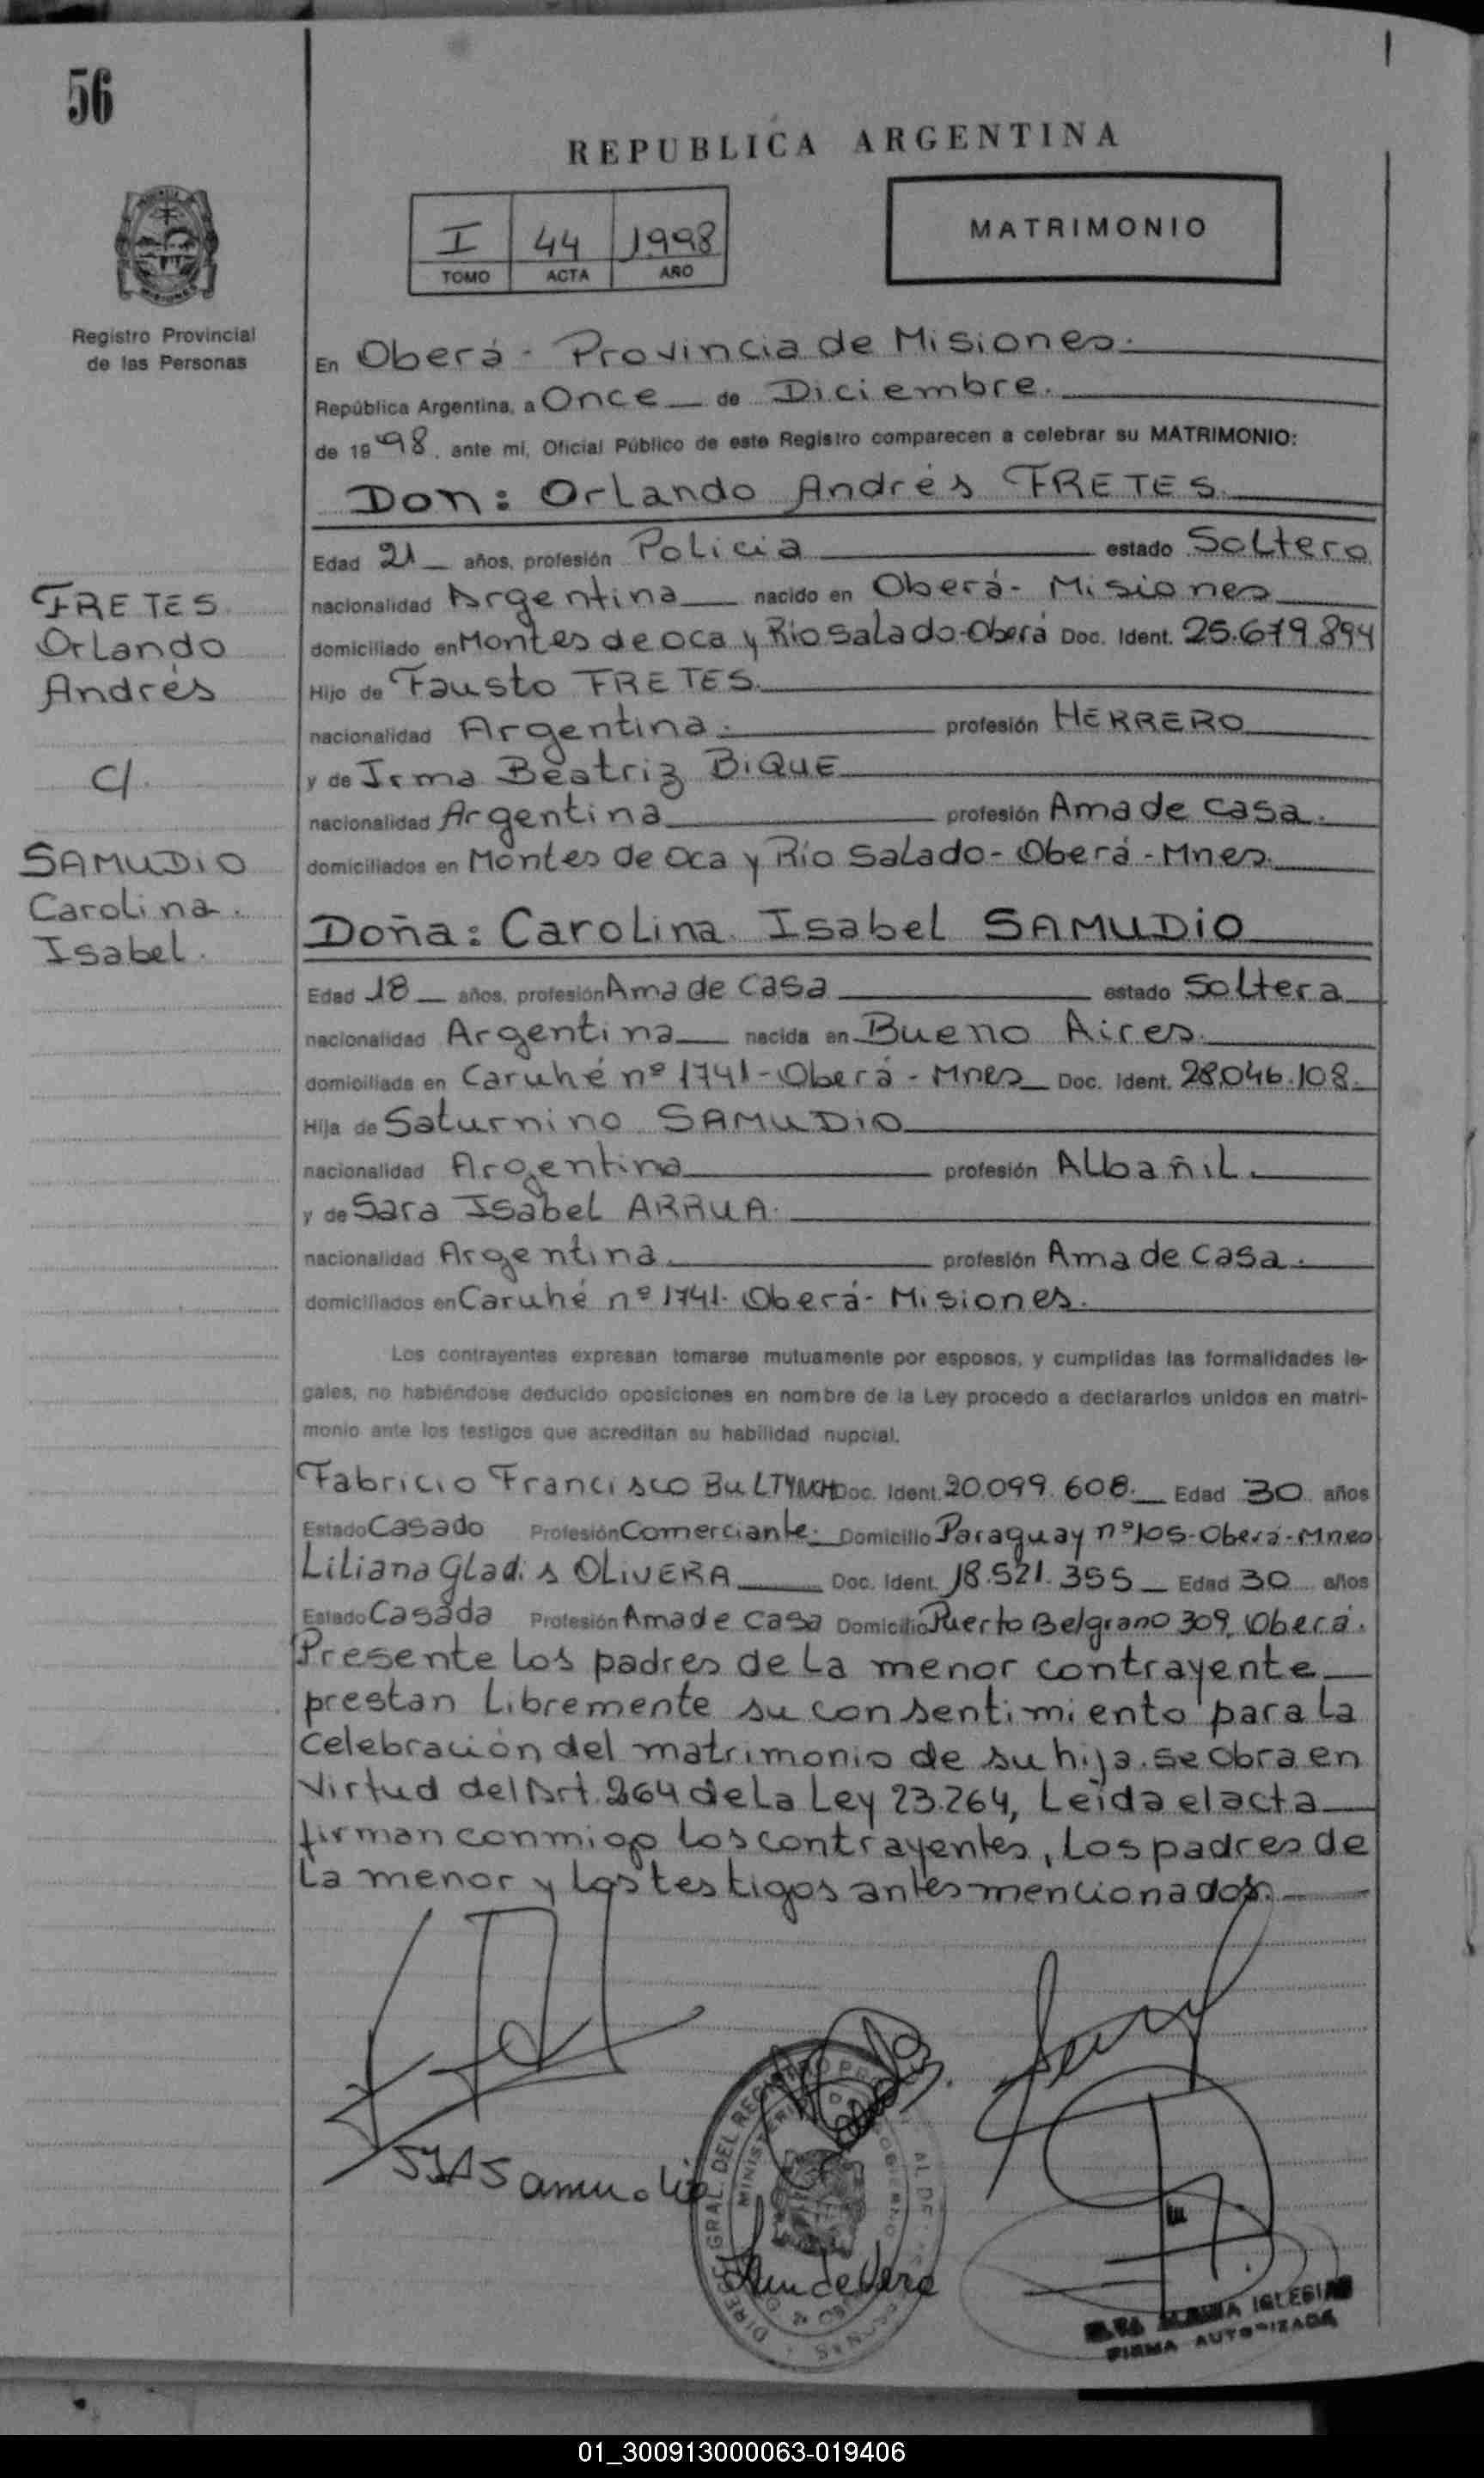 56
REPUBLICA ARGENTINA
I 44 1998
TOMO ACTA AÑO
MATRIMONIO
Registro Provincial
de las Personas
En Oberá - Provincia de Misiones.
República Argentina, a Once de Diciembre.
de 1998, ante mi, Oficial Público de este Registro comparecen a celebrar su MATRIMONIO:
Don: Orlando Andrés FRETES
Edad 21 años, profesión Policia estado Soltero
nacionalidad Argentina nacido en Oberá - Misiones
domiciliado en Montes de oca y Río Salado-Oberá Doc. Ident. 25.679.894
Hijo de Fausto FRETES.
nacionalidad Argentina. profesión HERRERO
y de Irma Beatriz BiQUE
nacionalidad Argentina profesión Ama de casa.
domiciliados en Montes de Oca y Río Salado - Oberá - Mnes.
FRETES
Orlando
Andrés
c/.
SAMUDIO
Carolina.
Isabel.
Doña: Carolina Isabel SAMUDiO
Edad 18 años, profesión Ama de Casa estado Soltera
nacionalidad Argentina nacida en Bueno Aires.
domiciliada en Caruhé nº 1741 - Oberá - Mnes Doc. Ident. 28.046.108.
Hija de Saturnino SAMUDiO
nacionalidad Argentina profesión Albañil.
y de Sara Isabel ARRUA.
nacionalidad Argentina. profesión Ama de casa.
domiciliados en Caruhé nº 1741. Oberá - Misiones.
Los contrayentes expresan tomarse mutuamente por esposos, y cumplidas las formalidades le-
gales, no habiéndose deducido oposiciones en nombre de la Ley procedo a declararlos unidos en matri-
monio ante los testigos que acreditan su habilidad nupcial.
Fabricio Francisco BuLTYNCH Doc. Ident. 20.099.608. Edad 30 años
Estado Casado Profesión Comerciante. Domicilio Paraguay nº 105-Oberá-Mnes
Liliana Gladis OLiVERA Doc. Ident. 18.521.355 Edad 30 años
Estado Casada Profesión Ama de casa Domicilio Puerto Belgrano 309, Oberá.
Presente los padres de la menor contrayente
prestan Libremente su consentimiento para la
celebración del matrimonio de su hija. se obra en
virtud del Art. 264 de la Ley 23.264, Leída el acta
firman conmigo los contrayentes, los padres de
la menor y los testigos antes mencionados.
SIA Samudio
IGLESIAS
FIRMA AUTORIZADA
01_300913000063-019406